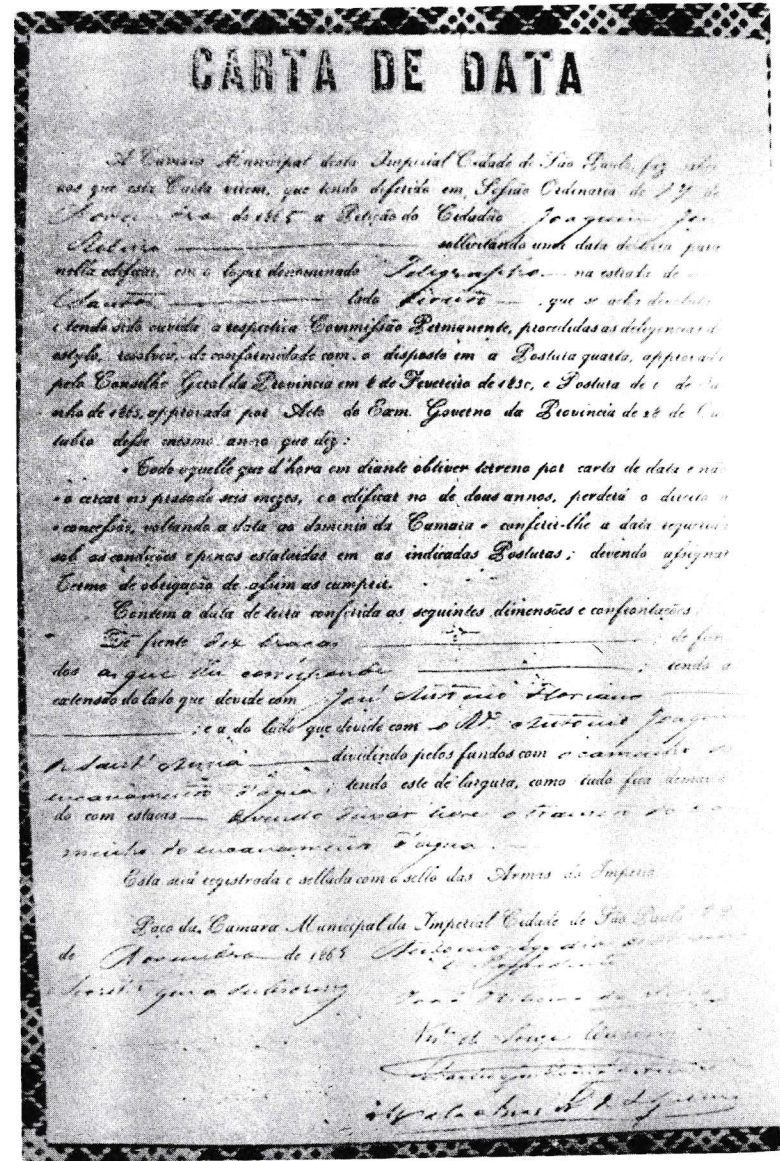 CARTA DE DATA
A Camara Municipal desta Imperial Cidade de São Paulo, faz saber
aos que esta Carta virem, que tendo diferido em Sessão Ordinaria de 27 de
Novembro de 1865 a Petição do Cidadão Joaquim José
sollicitando uma data de terra para
nella edificar, em o lugar denominado Telegrapho na estrada de
lado direito que se acha devoluta
e tendo sido ouvida a respectiva Commissão Permanente, procedidas as deligencias d
estylo, resolveu, de conformidade com o disposto em a Postura quarta, approvada
pelo Conselho Geral da Provincia em 6 de Fevereiro de 1830, e Postura de 1 de Ju
nho de 1863, approvada por Acto do Exm. Governo da Provincia de 28 de Ou
tubro desse mesmo anno que diz:
"Todo aquelle que d'hora em diante obtiver terreno por carta de data e não
"o cercar no praso de seis mezes, e o edificar no de dous annos, perderá o direito a
"concessão, voltando a data ao dominio da Camara" conferir-lhe a data requerida
sob as condições e penas estatuidas em as indicadas Posturas; devendo assignar
Termo de obrigação de assim as cumprir.
Contem a data de terra conferida as seguintes dimensões e confrontações
De frente dez braças ; de fun
dos a que lhe corresponde ; tendo a
extensão do lado que devide com José Antonio Floriano
; e a do lado que devide com o Antonio Joaqui
de Sant'Anna dividindo pelos fundos com o caminho do
encanamento d'agua ; tendo este de largura, como tudo fica demarca
do com estacas devendo deixar livre o transito do ca
minho do encanamento d'agua.
Esta será registrada e sellada com o sello das Armas do Imperio
Paço da Camara Municipal da Imperial Cidade de São Paulo
de Novembro de 1865